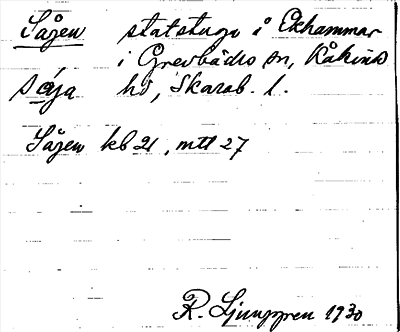 Sågen statstuga i Ekhammar
i Grevbäcks sn, Kåkinds
såja hd, Skarab. l.
Sågen kb 21, mtl 27
R. Ljunggren 1930